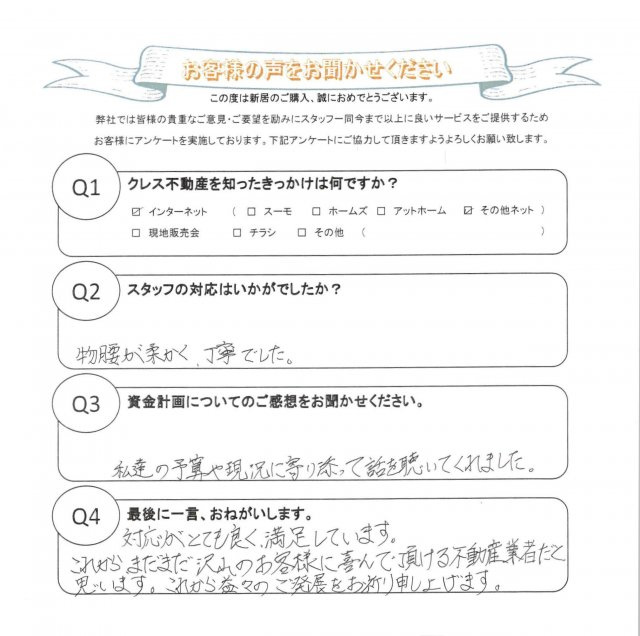 お客様の声をお聞かせください
この度は新居のご購入、誠におめでとうございます。
弊社では皆様の貴重なご意見・ご要望を励みにスタッフ一同今まで以上に良いサービスをご提供するため
お客様にアンケートを実施しております。下記アンケートにご協力して頂きますようよろしくお願い致します。
Q1 クレス不動産を知ったきっかけは何ですか？
☑ インターネット （ □ スーモ □ ホームズ □ アットホーム ☑ その他ネット ）
□ 現地販売会 □ チラシ □ その他 （ ）
Q2 スタッフの対応はいかがでしたか？
物腰が柔かく、丁寧でした。
Q3 資金計画についてのご感想をお聞かせください。
私達の予算や現況に寄り添って話を聴いてくれました。
Q4 最後に一言、おねがいします。
対応がとても良く、満足しています。
これからまだまだ沢山のお客様に喜んで頂ける不動産業者だと
思います。これから益々のご発展をお祈り申し上げます。